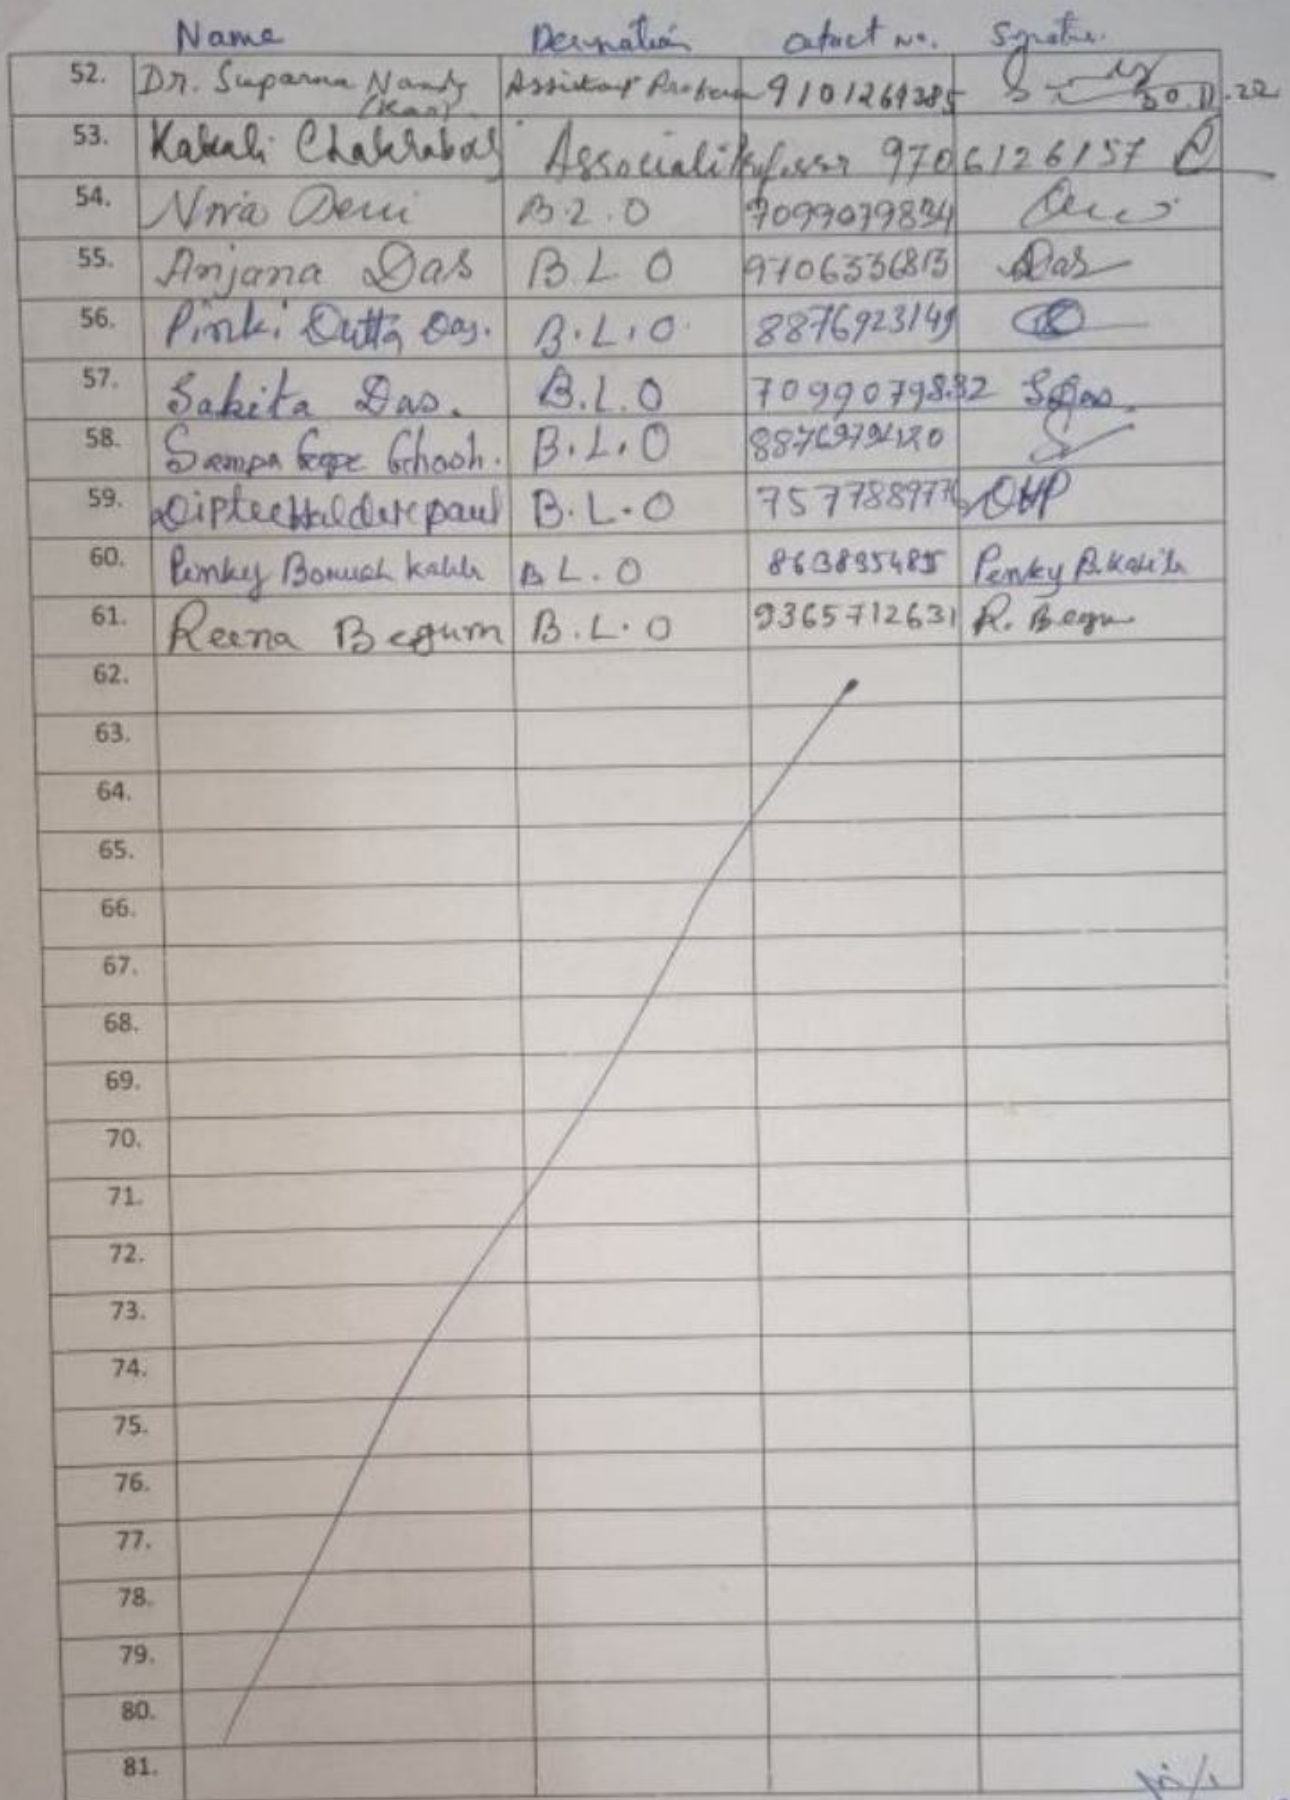 Name Designation Contact No. Signature
52. Dr. Suparna Nandy Assistant Professor 9101269385
(Kar) 30.11.22
53. Kakali Chakrabor Associate Professor 9706126157
54. Nira Devi B.L.O 7099079834
55. Anjana Das B.L.O 9706336813 Das
56. Pinki Dutta Das. B.L.O. 8876923149
57. Sabita Das. B.L.O 7099079832 SDas.
58. Sampa Gope Ghosh. B.L.O
59. Diptee Haldare paul B.L.O DHP
60. Penky Boruah Kalita B.L.O 863895485 Penky B.Kalita
61. Reena Begum B.L.O 9365712631 R. Begu
62.
63.
64.
65.
66.
67.
68.
69.
70.
71.
72.
73.
74.
75.
76.
77.
78.
79.
80.
81.